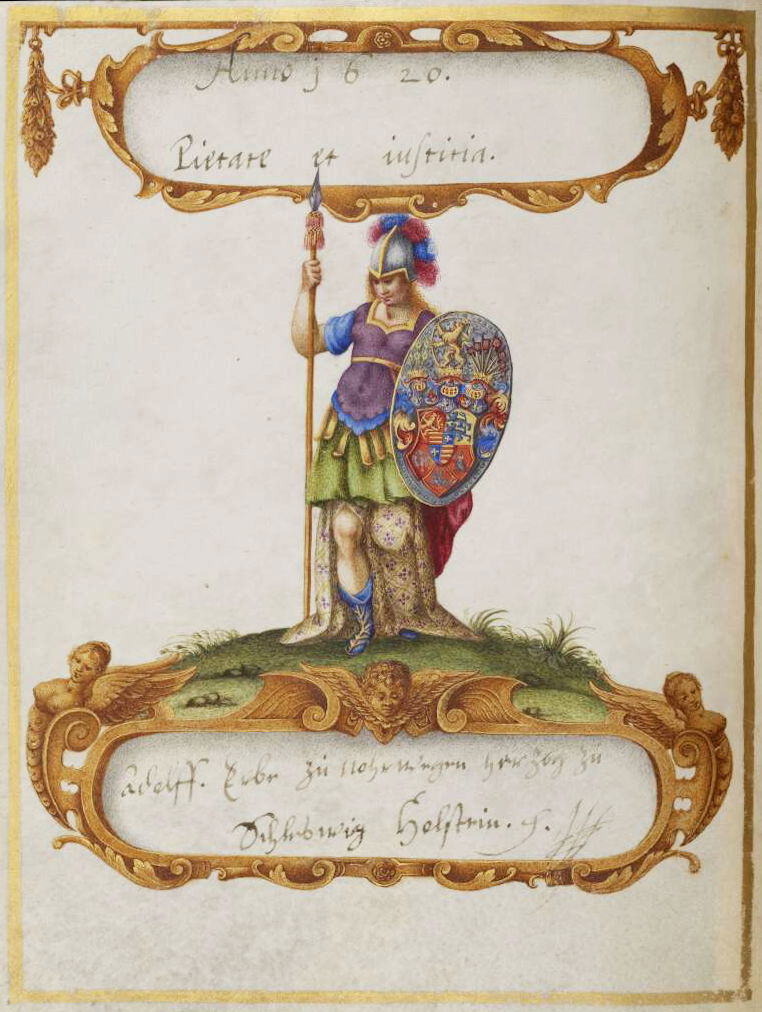 Anno 1620.
Pietate et iustitia.
Adolff. Erbe zů Nohrwegen Hertzog zů
Schleswig Holstein.